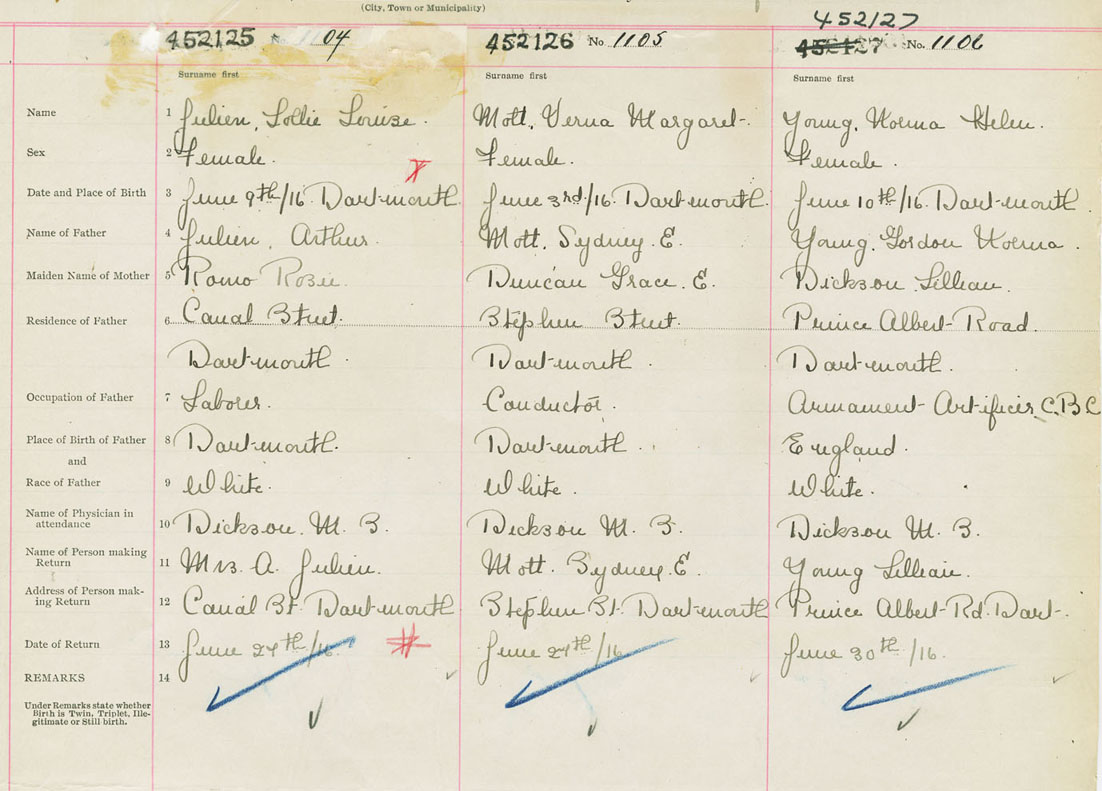 (City, Town or Municipality)
452127
452125 No 1104 452126 No 1105 45212 27 No. 1106
Surname first Surname first Surname first
Name 1 Julien, Lollie Louise. Mott, Verna Margaret. Young, Norma Helen.
Sex 2 Female. Female. Female.
Date and Place of Birth 3 June 9th/16. Dartmouth June 3rd/16. Dartmouth. June 10th/16. Dartmouth.
Name of Father 4 Julien, Arthur. Mott, Sydney. E. Young, Gordon Norma.
Maiden Name of Mother 5 Romo Rosie. Duncan Grace. E. Dickson Lillian.
Residence of Father 6 Canal Street. Stephen Street. Prince Albert Road.
Dartmouth. Dartmouth. Dartmouth.
Occupation of Father 7 Laborer. Conductor. Armament Artificer, C.B.C
Place of Birth of Father 8 Dartmouth. Dartmouth. England.
and
Race of Father 9 White. White. White.
Name of Physician in
attendance 10 Dickson. M. B. Dickson M. B. Dickson M. B.
Name of Person making
Return 11 Mrs. A. Julien. Mott. Sydney. E. Young Lillian.
Address of Person mak-
ing Return 12 Canal St. Dartmouth Stephen St. Dartmouth Prince Albert Rd. Dart.
Date of Return 13 June 27th/16. June 27th/16 June 30th/16.
REMARKS 14
Under Remarks state whether
Birth is Twin, Triplet, Ille-
gitimate or Still birth.